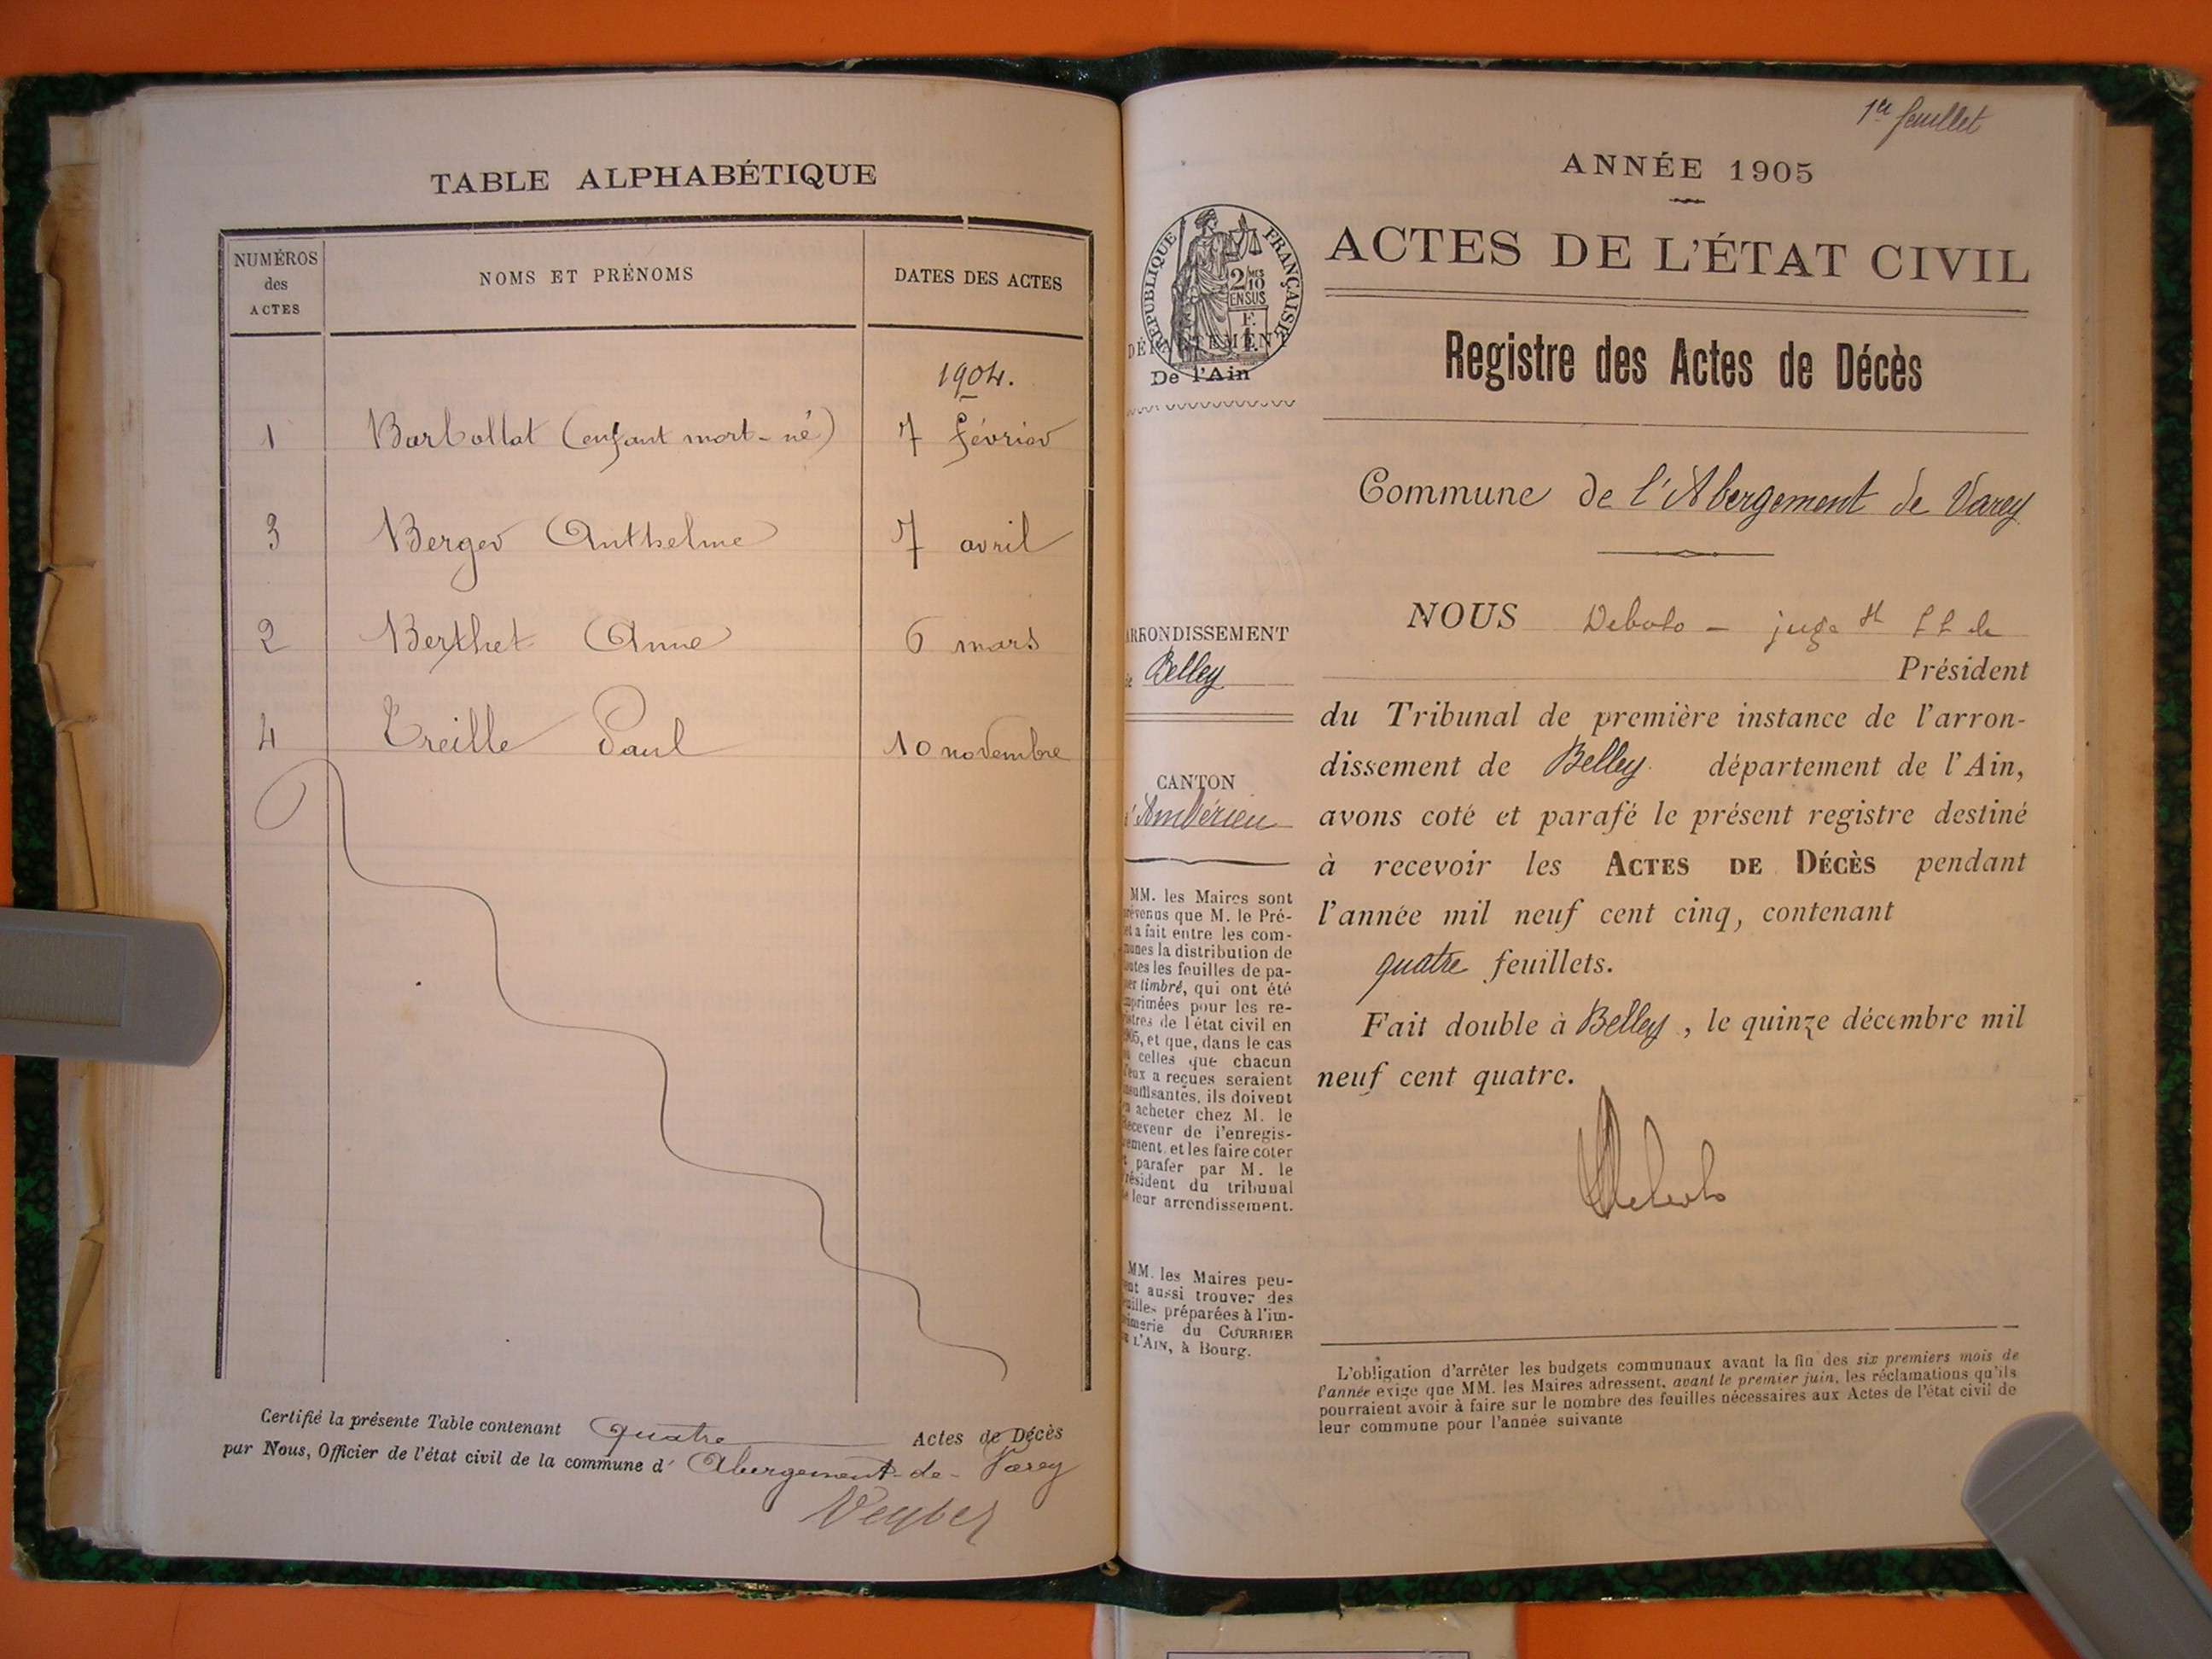 TABLE ALPHABÉTIQUE
NUMÉROS
des
ACTES
NOMS ET PRÉNOMS
DATES DES ACTES
1904.
1 Barbollat (enfant mort-né) 7 février
3 Berger Anthelme 7 avril
2 Berthet Anne 6 mars
4 Treille Paul 10 novembre
Certifié la présente Table contenant quatre Actes de Décès
par Nous, Officier de l'état civil de la commune d' Abergement-de-Varey
1er feuillet
ANNÉE 1905
ACTES DE L'ÉTAT CIVIL
RÉPUBLIQUE FRANÇAISE
2/10
MES
EN SUS
DÉPARTEMENT
De l'Ain
Registre des Actes de Décès
Commune de l'Abergement de Varey
ARRONDISSEMENT
de Belley
CANTON
d'Ambérieu
NOUS juge
Président
du Tribunal de première instance de l'arron-
dissement de Belley département de l'Ain,
avons coté et parafé le présent registre destiné
à recevoir les ACTES DE DÉCÈS pendant
l'année mil neuf cent cinq, contenant
quatre feuillets.
Fait double à Belley, le quinze décembre mil
neuf cent quatre.
MM. les Maires sont
prévenus que M. le Pré-
fet a fait entre les com-
munes la distribution de
toutes les feuilles de pa-
pier timbré, qui ont été
imprimées pour les re-
gistres de l'état civil en
1905, et que, dans le cas
où celles que chacun
d'eux a reçues seraient
insuffisantes, ils doivent
en acheter chez M. le
Receveur de l'enregis-
trement, et les faire coter
et parafer par M. le
Président du tribunal
de leur arrondissement.
MM. les Maires peu-
vent aussi trouver des
feuilles préparées à l'im-
primerie du COURRIER
DE L'AIN, à Bourg.
L'obligation d'arrêter les budgets communaux avant la fin des six premiers mois de
l'année exige que MM. les Maires adressent, avant le premier juin, les réclamations qu'ils
pourraient avoir à faire sur le nombre des feuilles nécessaires aux Actes de l'état civil de
leur commune pour l'année suivante